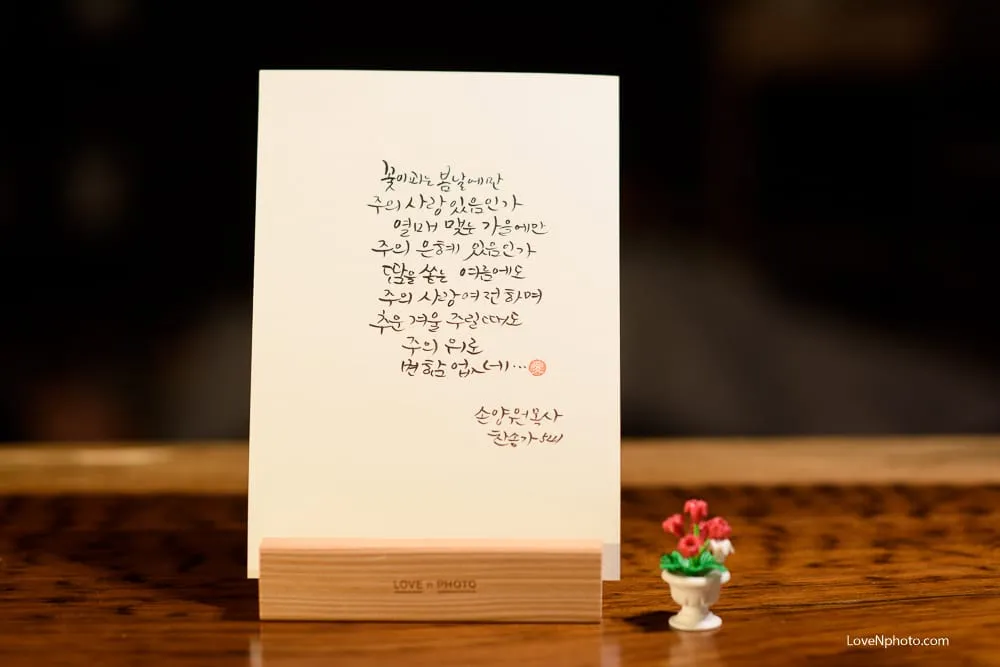 꽃이 피는 봄날에만
주의 사랑 있음인가
열매 맺는 가을에만
주의 은혜 있음인가
땀을 쏟는 여름에도
주의 사랑 여전하며
추운 겨울 주릴 때도
주의 위로
변함 없네…
손양원 목사
찬송가 541
LOVE n PHOTO
LoveNphoto.com